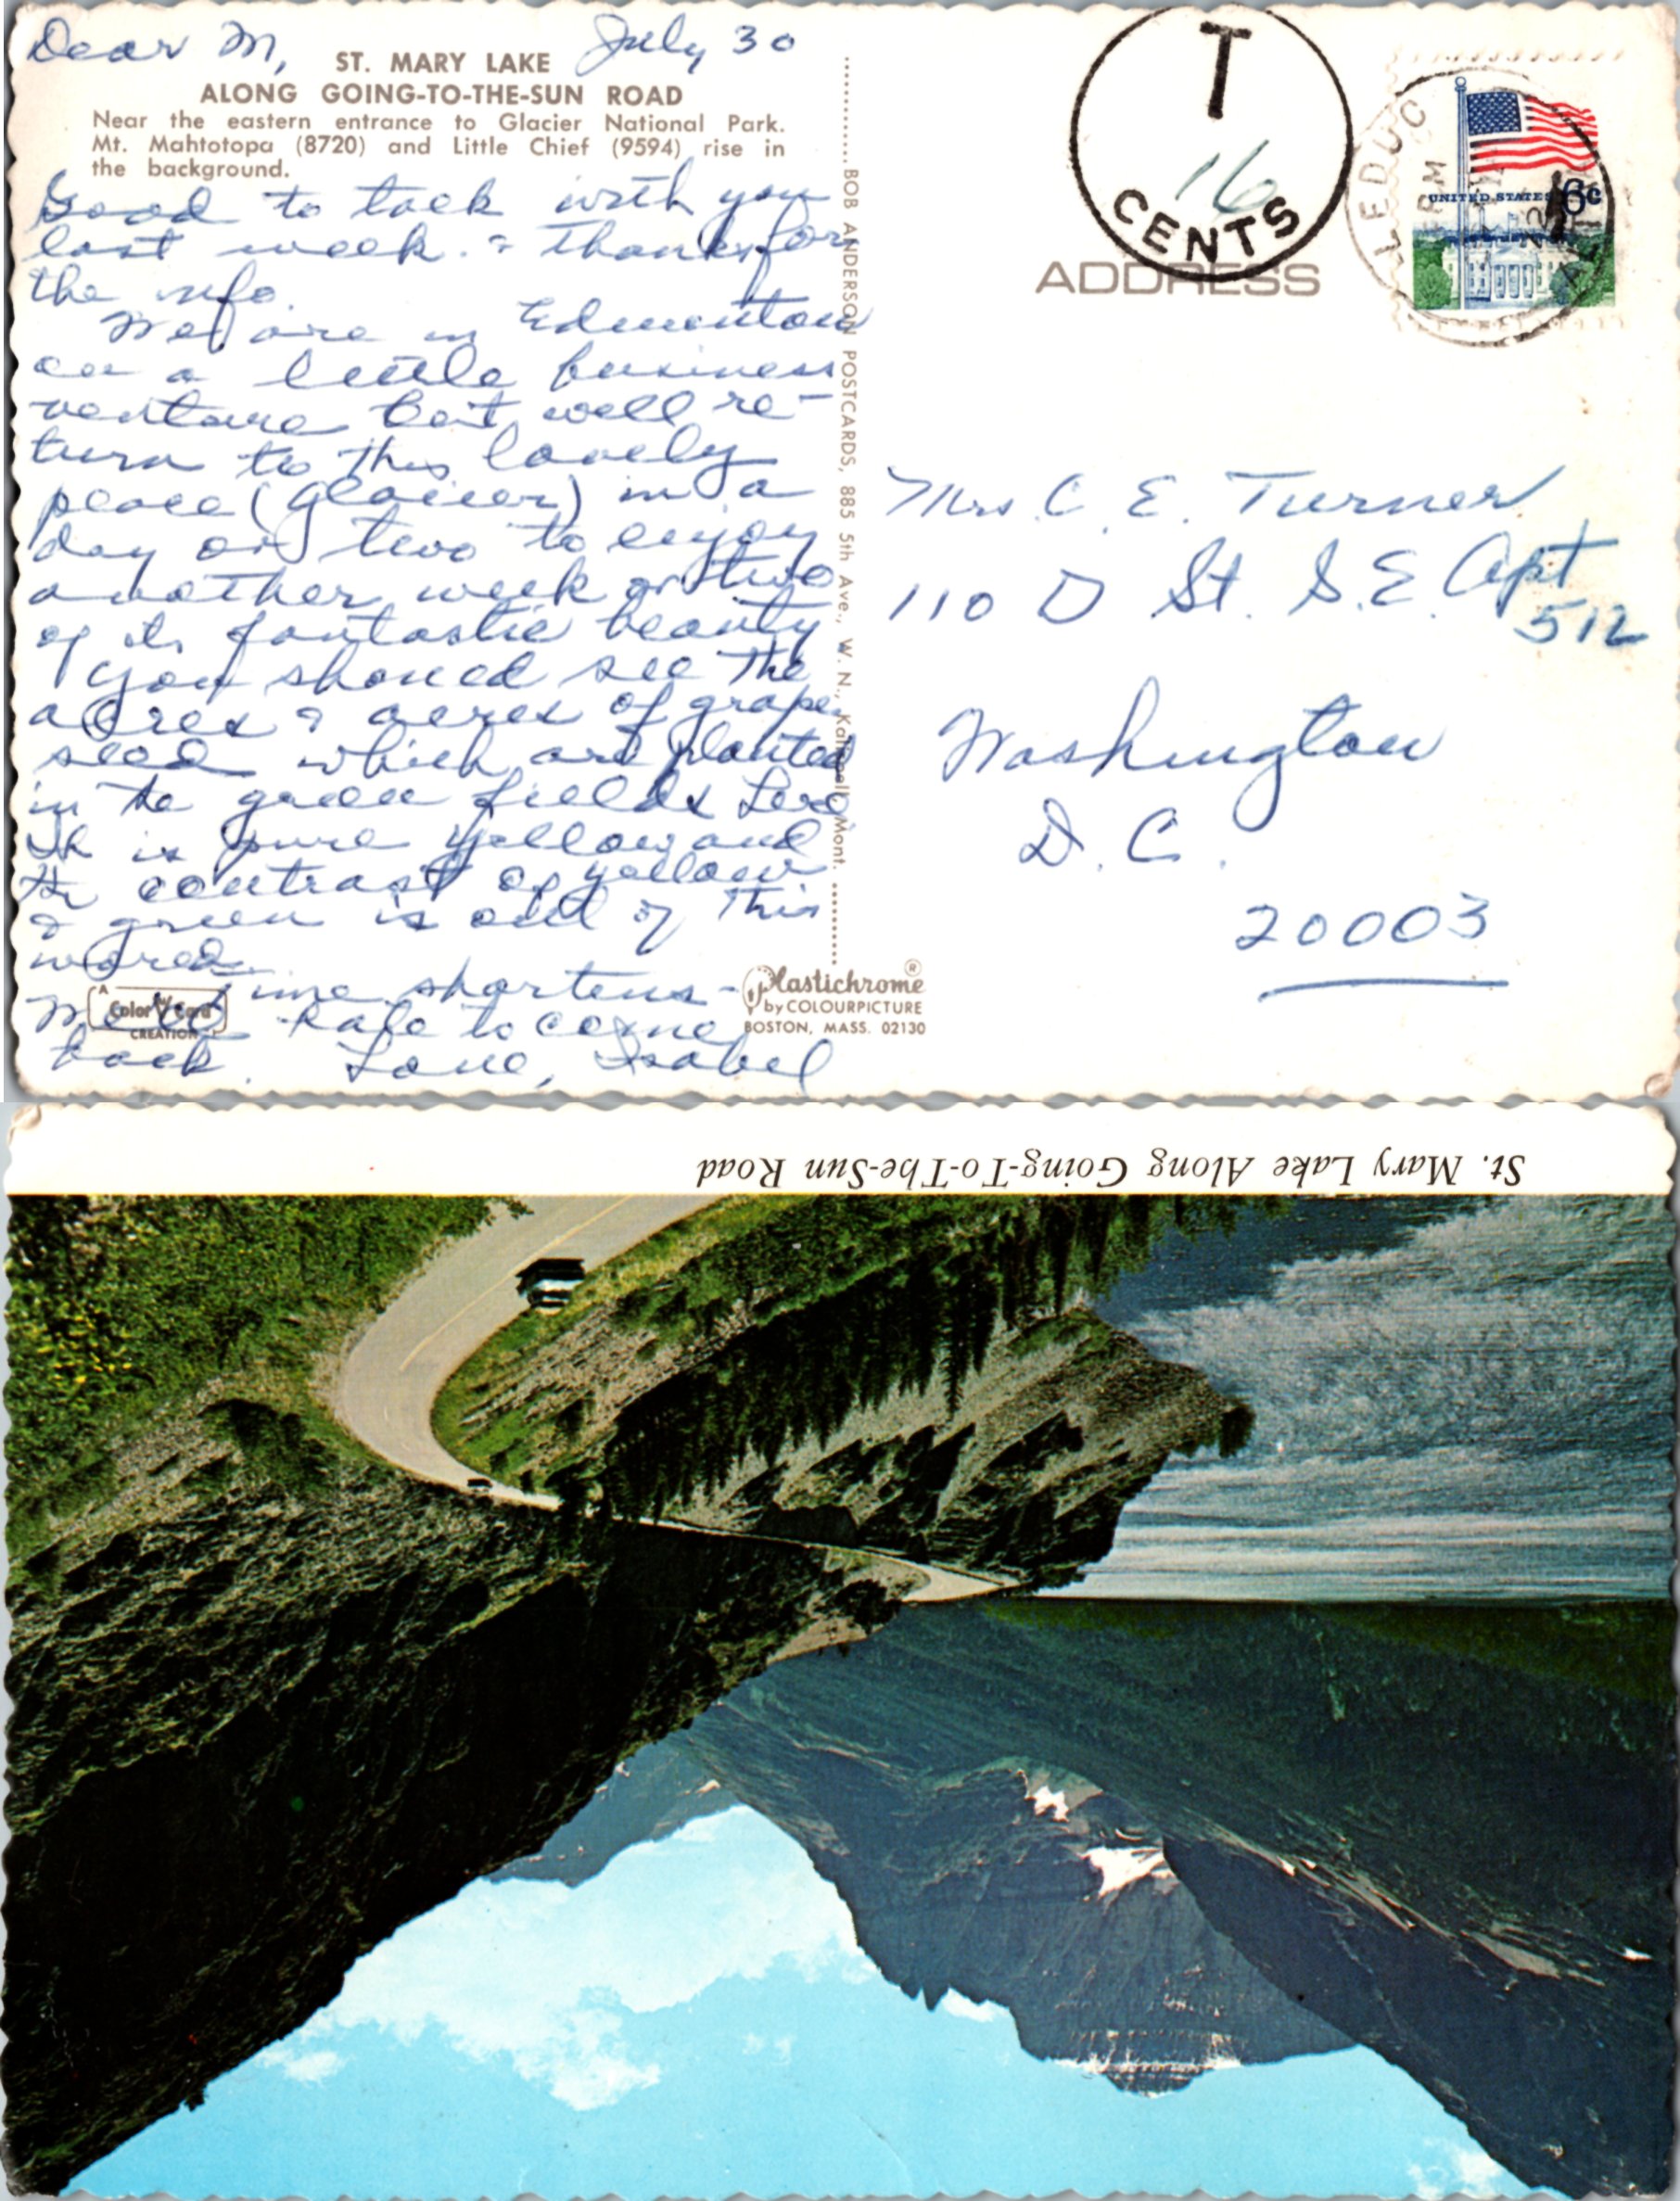 Dear M, July 30
ST. MARY LAKE
ALONG GOING-TO-THE-SUN ROAD
Near the eastern entrance to Glacier National Park.
Mt. Mahtotopa (8720) and Little Chief (9594) rise in
the background.
Good to talk with you
last week. & thanks for
the info.
We are in Edmonton
on a little business
venture but will re-
turn to this lovely
place (Glacier) in a
day or two to enjoy
another week or two
of its fantastic beauty
You should see the
acres & acres of grape
seed which are planted
in the green fields
is pure yellow and
the contrast of yellow
& green is out of this
world.
Time shortens-
to come
back. Love, Isabel
A
Color Card
CREATION
BOB ANDERSON POSTCARDS, 885 5th Ave., W. N., Kalispell, Mont.
Plastichrome ®
by COLOURPICTURE
BOSTON, MASS. 02130
T
16
CENTS
ADDRESS
LEDUC
PM
UNITED STATES 6c
Mrs C. E. Turner
110 D St. S.E. Apt
512
Washington
D. C.
20003
St. Mary Lake Along Going-To-The-Sun Road